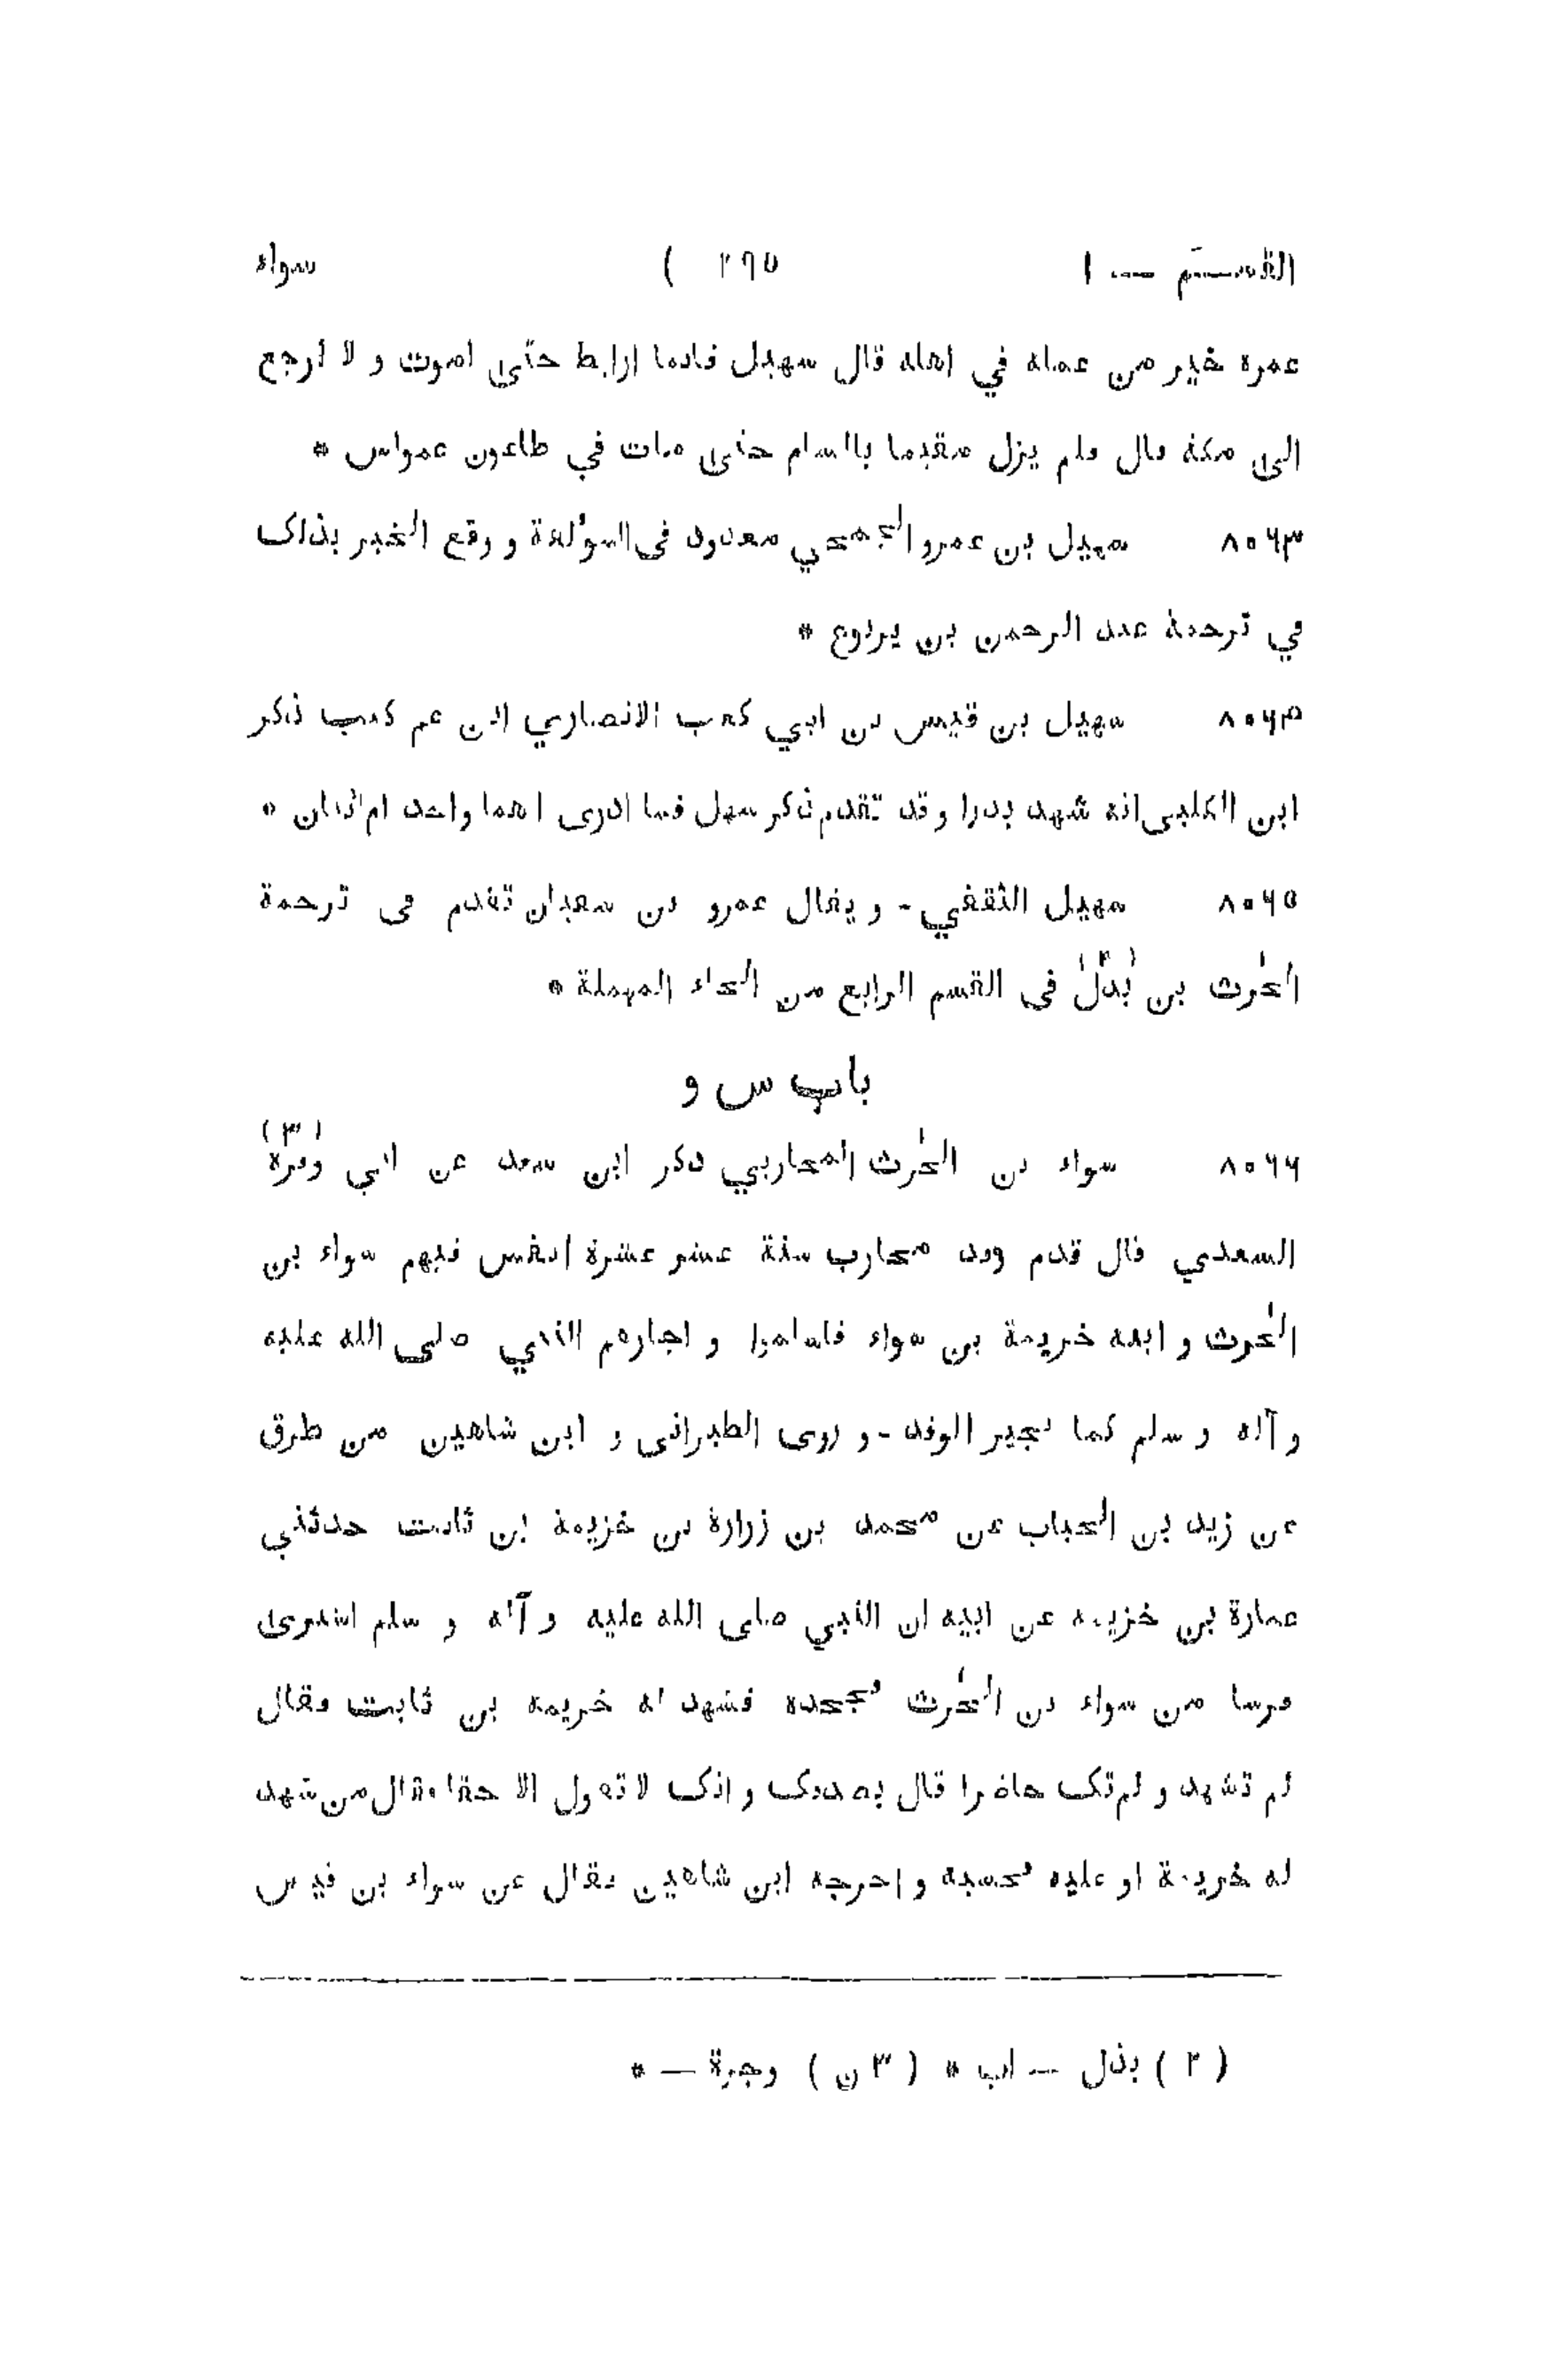 القســم — ١ ٢٦٥ ) سواء
عمره خير من عمله في اهله قال سهيل فانما ارابط حتى اموت و لا ارجع
الى مكة قال فلم يزل مقيما بالشام حتى مات في طاعون عمواس *
٨٠٦٣ سهيل بن عمرو الجمحي معدود فى المؤلفة و وقع الخبر بذلک
في ترجمة عبد الرحمن بن يربوع *
٨٠٦٤ سهيل بن قيس بن ابي كعب الانصاري ابن عم كعب ذكر
ابن الكلبى انه شهد بدرا و قد تقدم ذكر سهل فما ادرى اهما واحد ام اثنان *
٨٠٦٥ سهيل الثقفي - و يقال عمرو بن سفيان تقدم فى ترجمة
الحٰرث بن بُدَل (٢) فى القسم الرابع من الحاء المهملة *
باب س و
٨٠٦٦ سواء بن الحٰرث المحاربي ذكر ابن سعد عن ابي وفرة (٣)
السعدي قال قدم وفد محارب سنة عشر عشرة انفس فيهم سواء بن
الحٰرث و ابنه خزيمة بن سواء فاسلموا و اجازهم النبي صلى الله عليه
و آله و سلم كما يجيز الوفد - و روى الطبرانى و ابن شاهين من طرق
عن زيد بن الحباب عن محمد بن زرارة بن خزيمة بن ثابت حدثني
عمارة بن خزيمة عن ابيه ان النبي صلى الله عليه و آله و سلم اشترى
فرسا من سواء بن الحٰرث فجحده فشهد له خزيمة بن ثابت فقال
لم تشهد و لم تک حاضرا قال بصدقک و انک لا تقول الا حقا فقال من شهد
له خزيمة او عليه فحسبه و اخرجه ابن شاهين فقال عن سواء بن قيس
( ٢ ) بذل — اب * ( ٣ ن ) وجزة — *